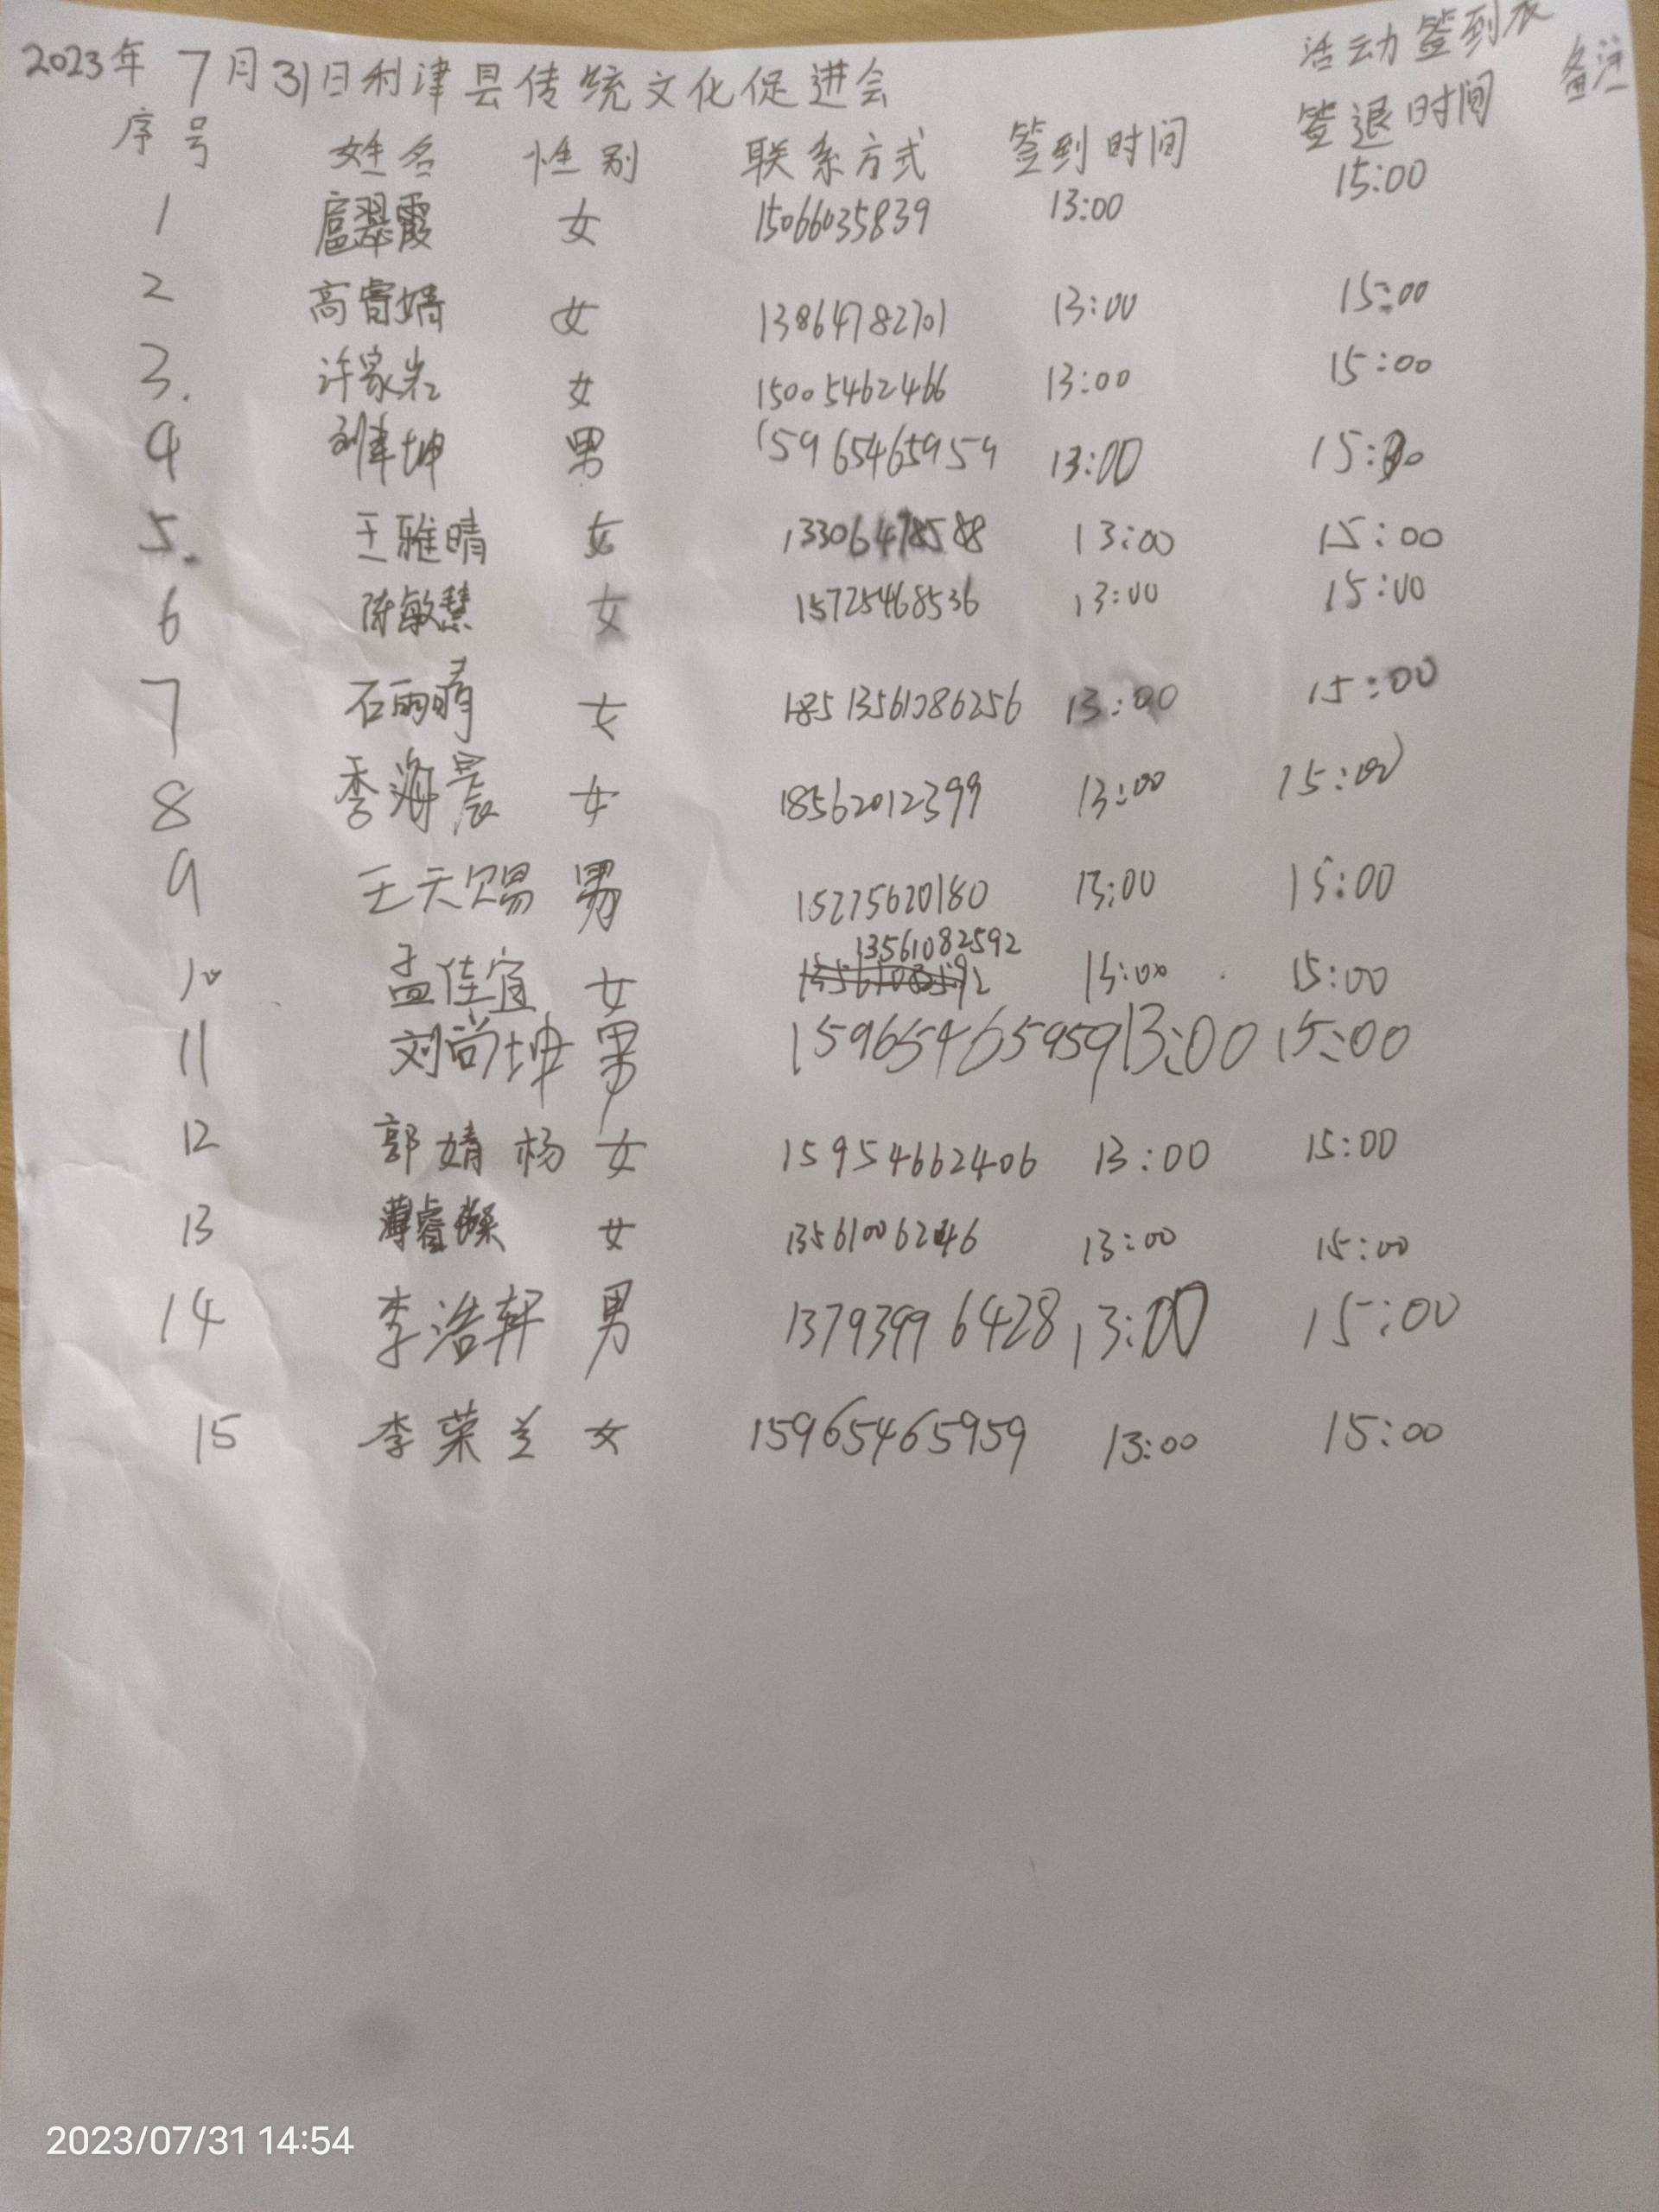 2023年 7月31日利津县传统文化促进会 活动签到表
序号 姓名 性别 联系方式 签到时间 签退时间 备注
1 扈翠霞 女 15066035839 13:00 15:00
2 高睿婧 女 13864782701 13:00 15:00
3. 许家岩 女 15005462466 13:00 15:00
4 坤 男 15965465959 13:00 15:00
5. 王雅晴 女 13306478588 13:00 15:00
6 陈敏慧 女 15725468536 13:00 15:00
7 石雨晴 女 13561086256 13:00 15:00
8 李海晨 女 18562012399 13:00 15:00
9 王天赐 男 15275620180 13:00 15:00
10 孟佳宜 女 13561082592 13:00 15:00
11 刘尚坤 男 15965465959 13:00 15:00
12 郭婧杨 女 15954662406 13:00 15:00
13 薄睿 女 13561006246 13:00 15:00
14 李浩轩 男 13793996428 13:00 15:00
15 李荣兰 女 15965465959 13:00 15:00
2023/07/31 14:54